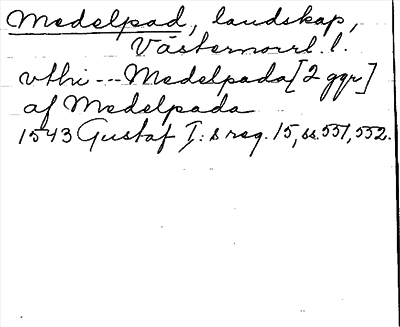 Medelpad, landskap,
Västernorrl. l.
vthi --- Medelpada [2 ggr]
af Medelpada
1543 Gustaf I:s reg. 15, ss. 551, 552.